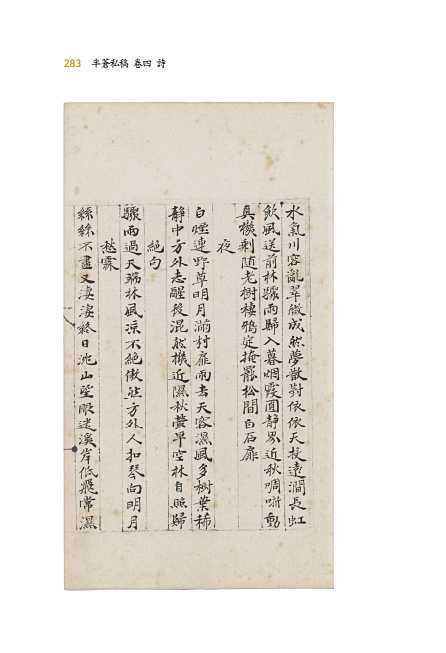 283 半蒼私稿 卷四 詩
水氣川容亂翠微成然夢散對依依天投遠澗長虹
飲風送前林驟雨歸入暮烟霞圓靜界近秋啁哳動
真機剩隨老樹棲鴉定掩罷松間白石扉
夜
白煙連野草明月滿村扉雨去天容濕風多樹葉稀
靜中方外志醒後混然機近濕秋螢早空林自照歸
絶句
驟雨過天端林風凉不絶傲然方外人扣琴向明月
愁霖
絲絲不盡又淒淒終日沈山望眼迷溪岸低飛常濕